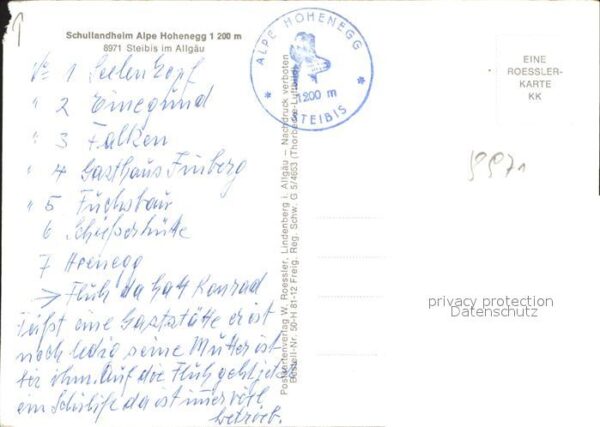 Schullandheim Alpe Hohenegg 1 200 m
8971 Steibis im Allgäu
No 1 Seelenkopf
" 2 Eineguntd
" 3 Falken
" 4 Gasthaus Imberg
" 5 Fuchsbau
6 Schießerhütte
7 Hrenegg
→ Fluh da hatt Konrad
Feißt eine Gaststätte er ist
noch ledig seine Mutter ist
bei ihm. Auf die Fluh geht jetz
ein Schilift da ist imer viel
betrieb.
ALPE HOHENEGG
1200 m
* STEIBIS *
Postkartenverlag W. Roessler, Lindenberg i. Allgäu – Nachdruck verboten
Bestell-Nr. 50-H 81-12 Freig. Reg. Schw. G 5/4663 (Thorbecke-Luftbild)
EINE
ROESSLER-
KARTE
KK
9971
privacy protection
Datenschutz